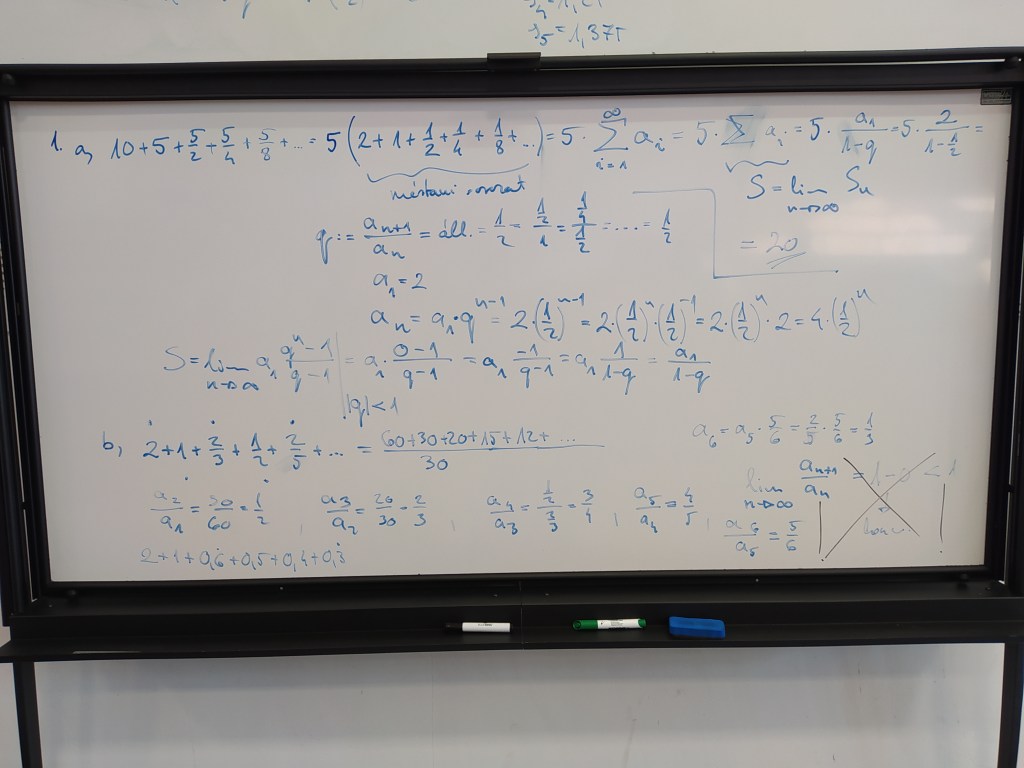 S₅ = 1,375
1. a, 10+5+5/2+5/4+5/8+... = 5(2+1+1/2+1/4+1/8+...) = 5·∑_{i=1}^{∞} a_i = 5·∑ a_i = 5·a₁/(1-q) = 5·2/(1-1/2) =
mértani sorozat
S = lim_{n→∞} Sₙ
q := aₙ₊₁/aₙ = áll. = 1/2 = (1/2)/1 = (1/4)/(1/2) = .... = 1/2
= 20
a₁ = 2
aₙ = a₁·qⁿ⁻¹ = 2·(1/2)ⁿ⁻¹ = 2·(1/2)ⁿ·(1/2)⁻¹ = 2·(1/2)ⁿ·2 = 4·(1/2)ⁿ
S = lim_{n→∞} a₁ (qⁿ-1)/(q-1) | = a₁·(0-1)/(q-1) = a₁ (-1)/(q-1) = a₁ 1/(1-q) = a₁/(1-q)
|q|<1
b, 2+1+2/3+1/2+2/5+... = (60+30+20+15+12+...)/30
a₆ = a₅·5/6 = 2/5·5/6 = 1/3
lim_{n→∞} aₙ₊₁/aₙ = 1-0 < 1
a₂/a₁ = 30/60 = 1/2, a₃/a₂ = 20/30 = 2/3, a₄/a₃ = (1/2)/(2/3) = 3/4, a₅/a₄ = 4/5,
a₆/a₅ = 5/6
2+1+0,6̇+0,5+0,4+0,3̇